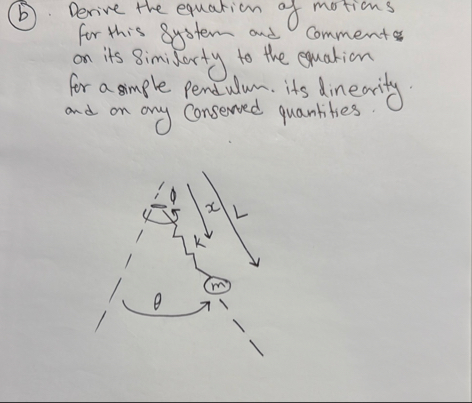 (b). Derive the equation of motions
for this system and comment
on its Similarty to the equation
for a simple pendulum. its linearity.
and on any Conserved quantities.
ϕ
x
L
k
m
θ